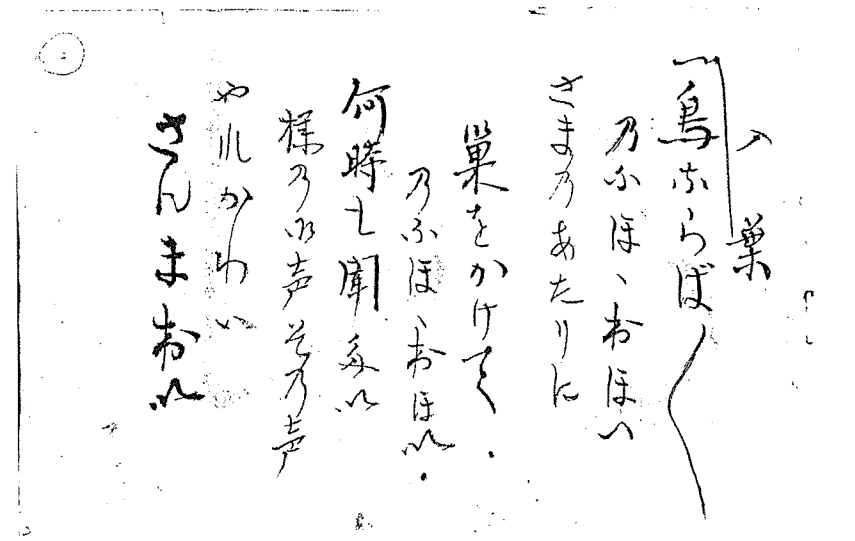 入葉
〽鳥ならば
乃ふほゝおほい
さま乃あたりに
巣をかけて、
乃ふほゝおほい、
何時も聞多い
様乃御声そ乃声
やれかわい
さんまおい